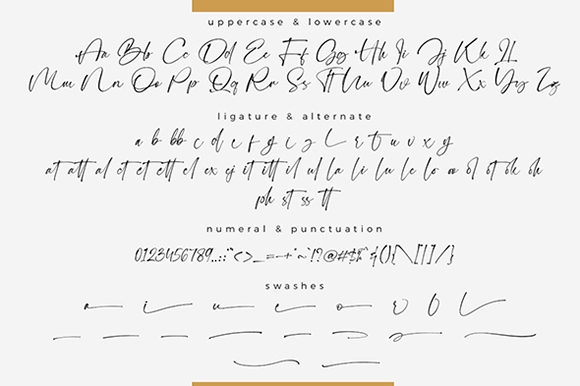 uppercase & lowercase
Aa Bb Cc Dd Ee Ff Gg Hh Ii Jj Kk Ll
Mm Nn Oo Pp Qq Rr Ss Tt Uu Vv Ww Xx Yy Zz
ligature & alternate
a b bb c d e f g i j L r t u v x y
at att al ct et ett el ex ej it itt il ul la li lu le lo oo ol ot ok oh
ph st ss tt
numeral & punctuation
0123456789.,:;"<>_=-+*~'!?@#$%^&(){\[]/}
swashes
a i u e o r b L